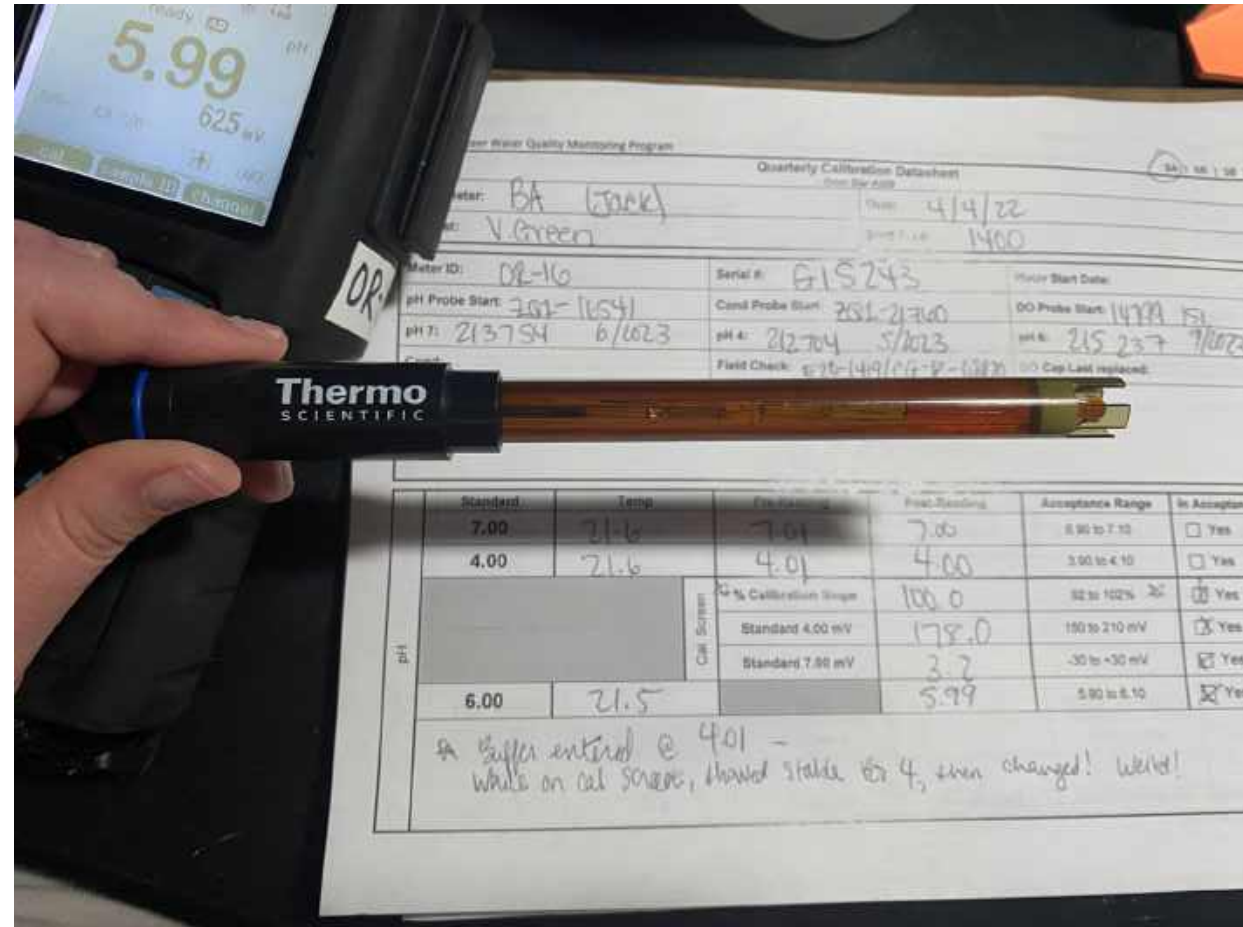 ready AR
5.99 pH
625 mV
cal sample ID channel
OR-
Thermo
SCIENTIFIC
Water Quality Monitoring Program
Quarterly Calibration Datasheet
BA (Jack)
4/4/22
V. Green
1400
Meter ID: OR-16 Serial #: G15243 Start Date:
pH Probe Start: Cond Probe Start: DO Probe Start:
pH 7: 213754 6/2023 pH 4: 212704 5/2023 215 237
Field Check: DO Cap Last replaced:
Standard Temp Pre-Reading Post-Reading Acceptance Range
7.00 21.6 7.01 7.00 6.90 to 7.10 Yes
4.00 21.6 4.01 4.00 3.90 to 4.10 Yes
pH
Cal Screen
% Calibration Slope 100.0 92 to 102% Yes
Standard 4.00 mV 178.0 150 to 210 mV Yes
Standard 7.00 mV 3.2 -30 to +30 mV Yes
6.00 21.5 5.99 5.90 to 6.10 Yes
Buffer entered @ 4.01 -
while on cal screen, showed stable for 4, then changed! Weird!